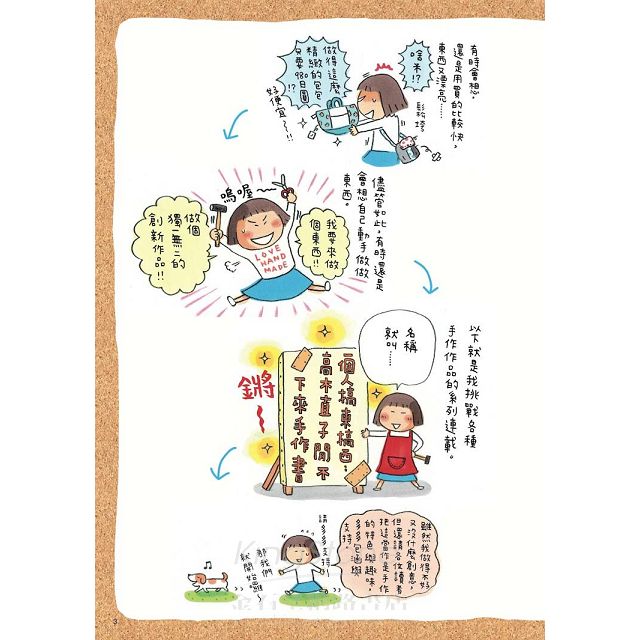 有時會想，
還是用買的比較快，
東西又漂亮……
啥米!?
做得這麼
精緻的包包
只要980日圓
!?
好便宜～!!
鬆垮
儘管如此，有時還是
會想自己動手做做
東西。
嗚喔～
我要來做
個東西!!
LOVE
HAND
MADE
做個
獨一無二的
創新作品!!
以下就是我挑戰各種
手作作品的系列連載。
名稱
就叫……
鏘～
個人搞東搞西：
高木直子閒不
下來手作書
雖然我做得不好
又沒什麼創意，
但還請各位讀者
把這當作是手作
的特色與趣味，
多多包涵與
支持。
請多多支持！
那我們
就開始囉～
3